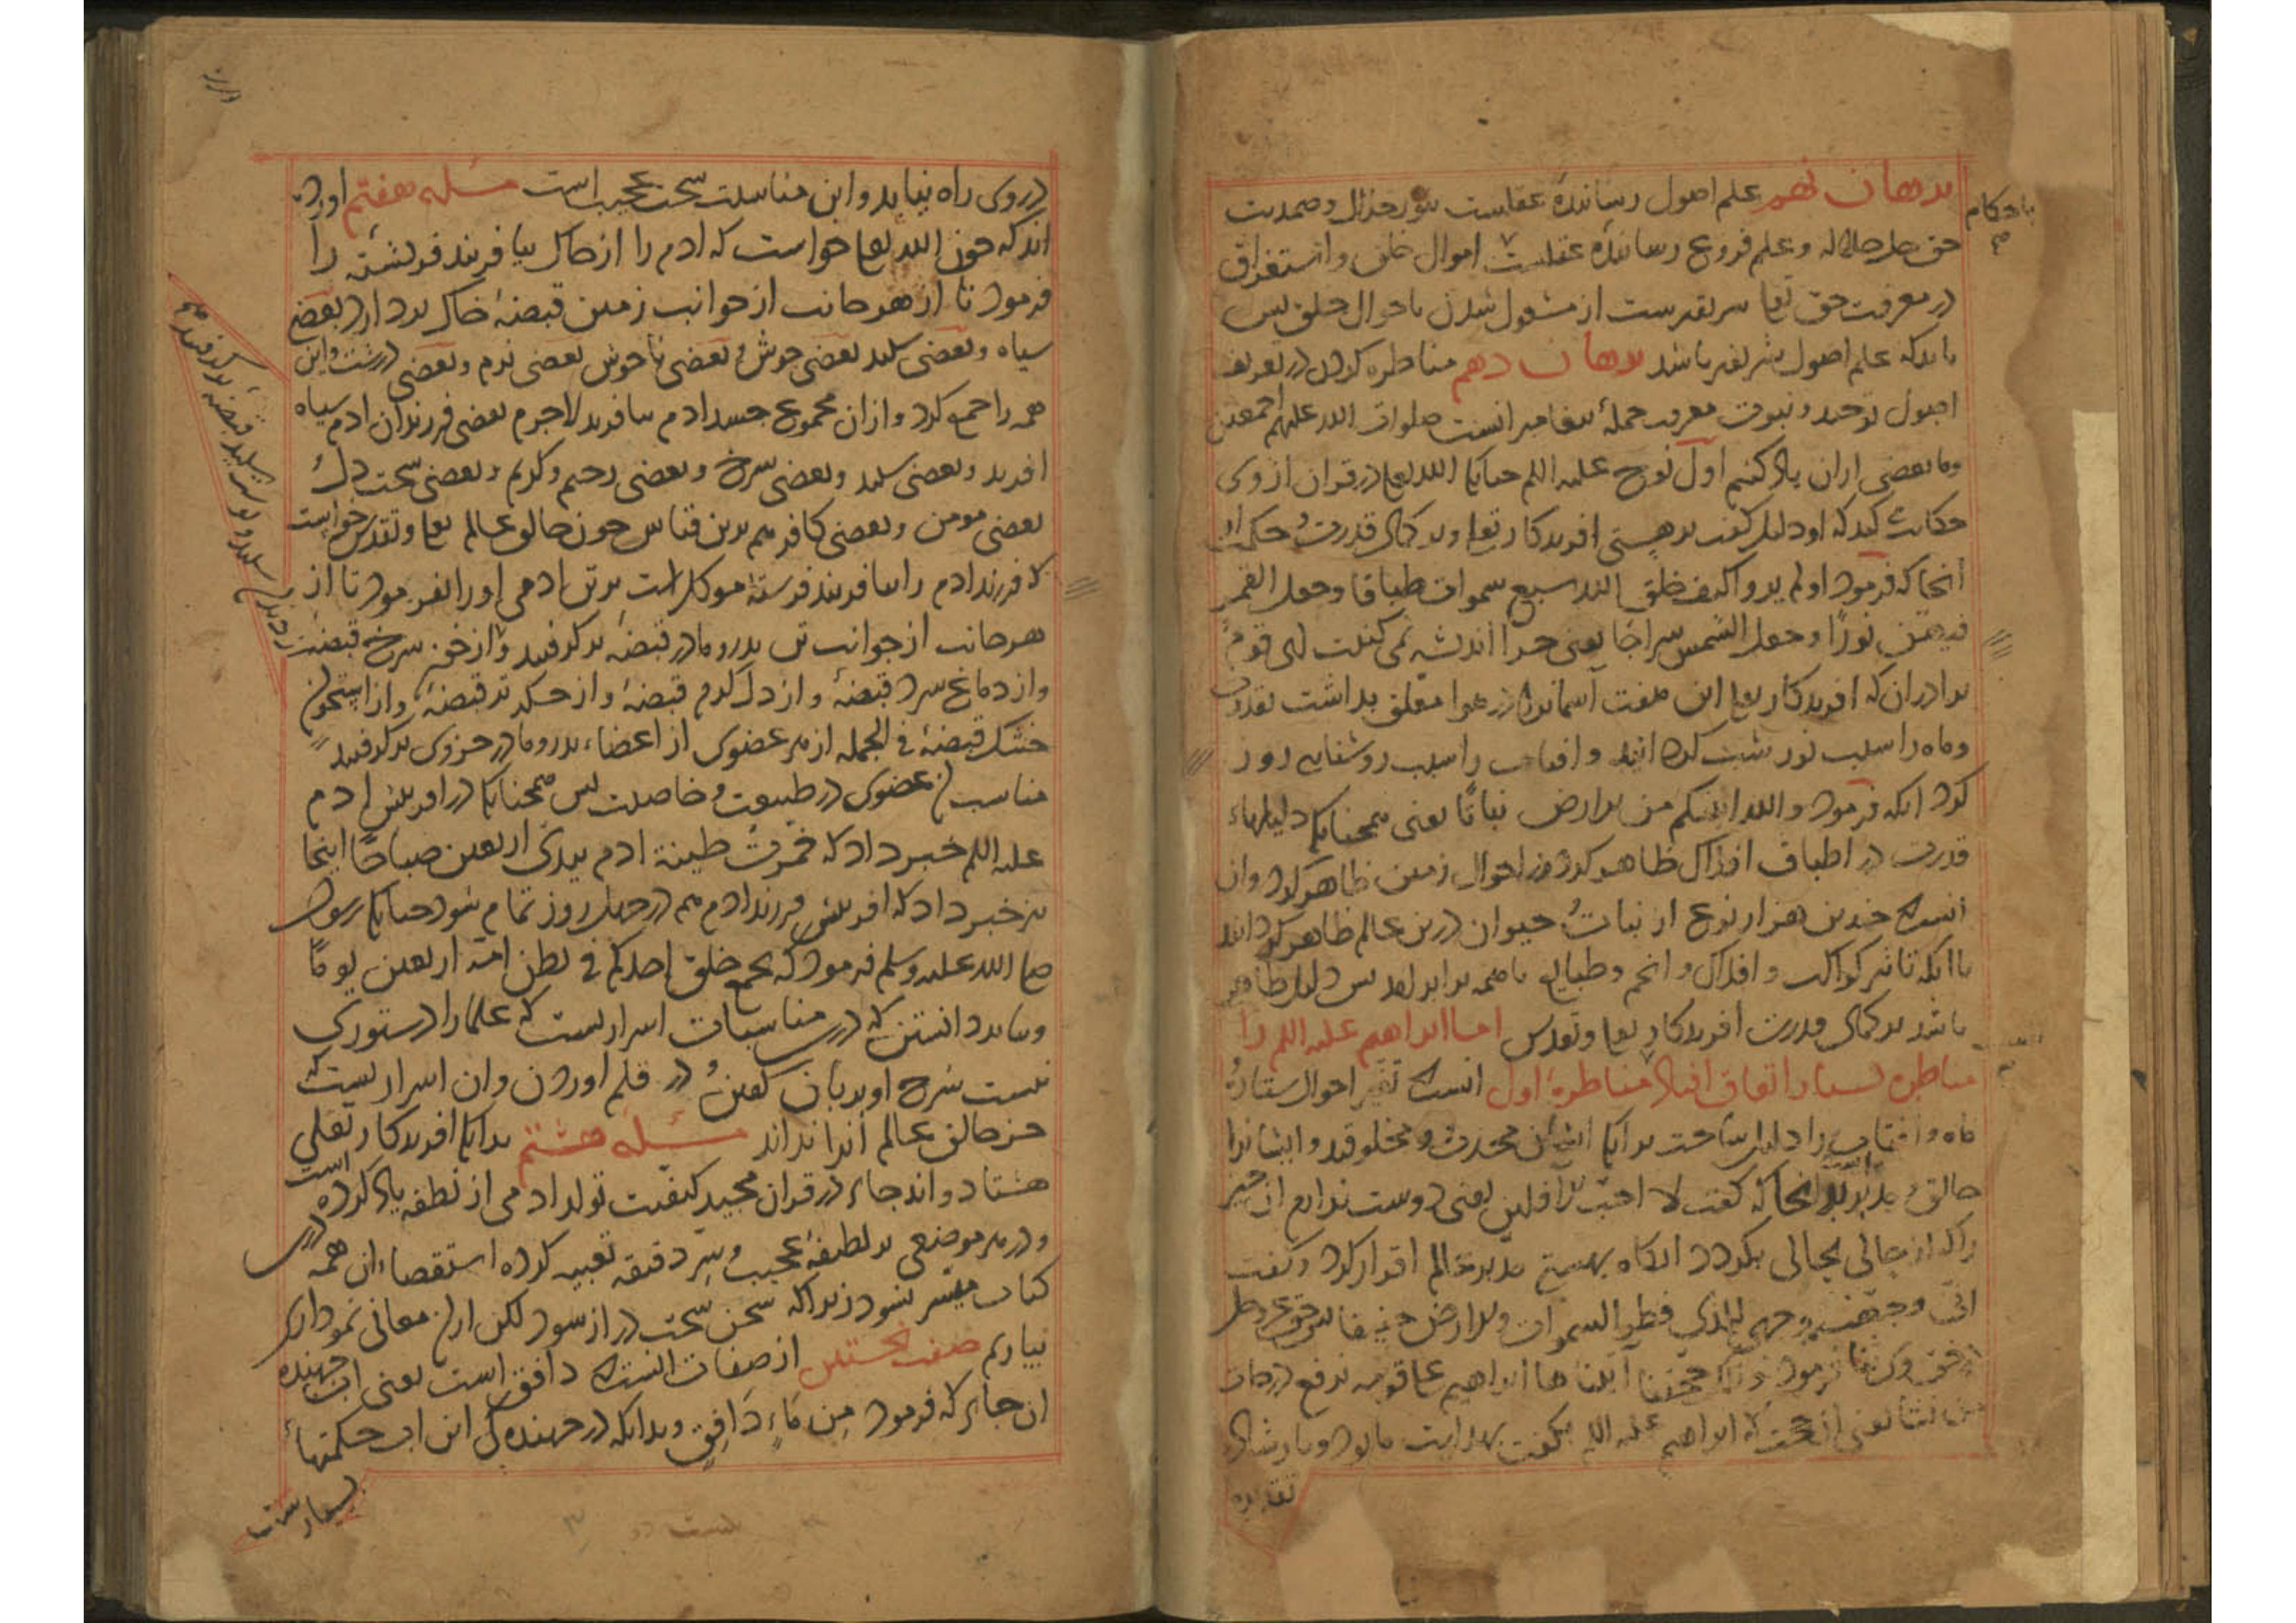 برهان نهم علم اصول رسانندهٔ عقلست بنور جلال و صمدیت
حق جل جلاله و علم فروع رسانندهٔ عقلست باحوال خلق و استغراق
در معرفت حق تعا شریفترست از مشغول شدن باحوال خلق پس
باید که علم اصول شریفتر باشد برهان دهم مناظره کردن در تعریف
اصول توحید و نبوت معرفت جملهٔ پیغامبرانست صلوات الله علیهم اجمعین
وما بعضی ازان یاد کنیم اول نوح علیه السلم چنانکه الله تعا در قران ازوی
حکایت کند که او دلیل گفت بر هستی افریدکار تعا و بر کمال قدرت و حکمت او
آنجا که فرمود اولم یروا کیف خلق الله سبع سموات طباقا وجعل القمر
فیهن نورًا وجعل الشمس سراجًا یعنی چرا اندیشه نمی کنیت ای قوم
مرا دران که افریدکار تعا این هفت آسمانرا در هوا معلق بداشت بقدرت
وماه را سبب نور شب کردانید و افتاب را سبب روشنایی روز
کرد انکه فرمود والله انبتکم من الارض نباتًا یعنی همچنانکه دلیلهاء
قدرت در اطباق افلاک ظاهر کرد در احوال زمین ظاهر کرد وان
انست که چندین هزار نوع از نبات و حیوان درین عالم ظاهر کردانید
با انکه تاثیر کواکب و افلاک و انجم و طبایع با همه برابر بود پس دلیل ظاهر
باشد بر کمال قدرت افریدکار تعا و تقدس اما ابراهیم علیه السلم را
مناظره بسیار اتفاق افتاد مناظرهٔ اول انست که تغیر احوال ستاره
ماه و افتاب را دلیل ساخت برانکه ایشان محدث و مخلوقند و ایشانرا
خالق و مدبر انجا که گفت لا احب الافلین یعنی دوست ندارم ان چیز
را که از حالی بحالی بکردد انکاه بهستی مدبر عالم اقرار کرد و گفت
انی وجهت وجهی للذی فطر السموات والارض حنیفا پس حق عز وجل
فرمود وتلک حجتنا آتیناها ابراهیم علی قومه نرفع درجات
من نشا یعنی این حجت که ابراهیم علیه السلم بگفت بهدایت ما بود و بارشاد
باحکام
در وی راه نیابد و این مناسبت سخت عجیب است مسئلهٔ هفتم اورده
اند که چون الله تعا خواست که ادم را از خاک بیافریند فرشته را
فرمود تا از هر جانب از جوانب زمین قبضهٔ خاک بردارد بعضی
سیاه و بعضی سپید بعضی خوش و بعضی ناخوش بعضی نرم و بعضی درشت و این
همه را جمع کرد و ازان مجموع جسد ادم بیافرید لاجرم بعضی فرزندان ادم سیاه
افرید و بعضی سپید و بعضی سرخ و بعضی رحیم و کریم و بعضی سخت دل
بعضی مومن و بعضی کافر هم برین قیاس چون خالق عالم تعا و تقدس خواست
که فرزند ادم را بیافریند فرستهٔ موکل است برتن ادمی اورا بفرمود تا از
هر جانب از جوانب تن پدر و مادر قبضهٔ برکرفتند و از خون سرخ قبضهٔ
و از دماغ سرد قبضهٔ و از دل کرم قبضهٔ و از جکر تر قبضهٔ و از استخوان
خشک قبضهٔ فی الجمله از هر عضوی از اعضاء پدر و مادر جزوی برکرفتند
مناسب آن عضوی در طبیعت و خاصیت پس همچنانکه در افرینش ادم
علیه السلم خبر داد که خمرت طینة ادم بیدی اربعین صباحًا اینجا
نیز خبر داد که افرینش فرزند ادم هم در چهل روز تمام شود چنانکه رسول
صلی الله علیه وسلم فرمود که یجمع خلق احدکم فی بطن امه اربعین یومًا
وبباید دانستن که درین مناسبات اسراریست که علما را دستوری
نیست شرح او بزبان گفتن و در قلم اوردن وان اسراریست که
جز خالق عالم آنرا نداند مسئلهٔ هشتم بدانکه افریدکار تعالی
هشتاد و اند جاء در قران مجید کیفیت تولد ادمی از نطفه یاد کرده است
و در هر موضعی بر لطیفهٔ عجیب و سر دقیقه تعبیه کرده استقصاء ان همه درین
کتاب میسر نشود زیرا که سخن سخت دراز شود لکن ازان معانی نموداری
بیاریم صفت نخستین از صفات انست که دافق است یعنی اب جهنده
ان جای که فرمود مِن مَاءٍ دَافِقٍ وبدانکه در جهندگی این اب حکمتهاء
بسیارست